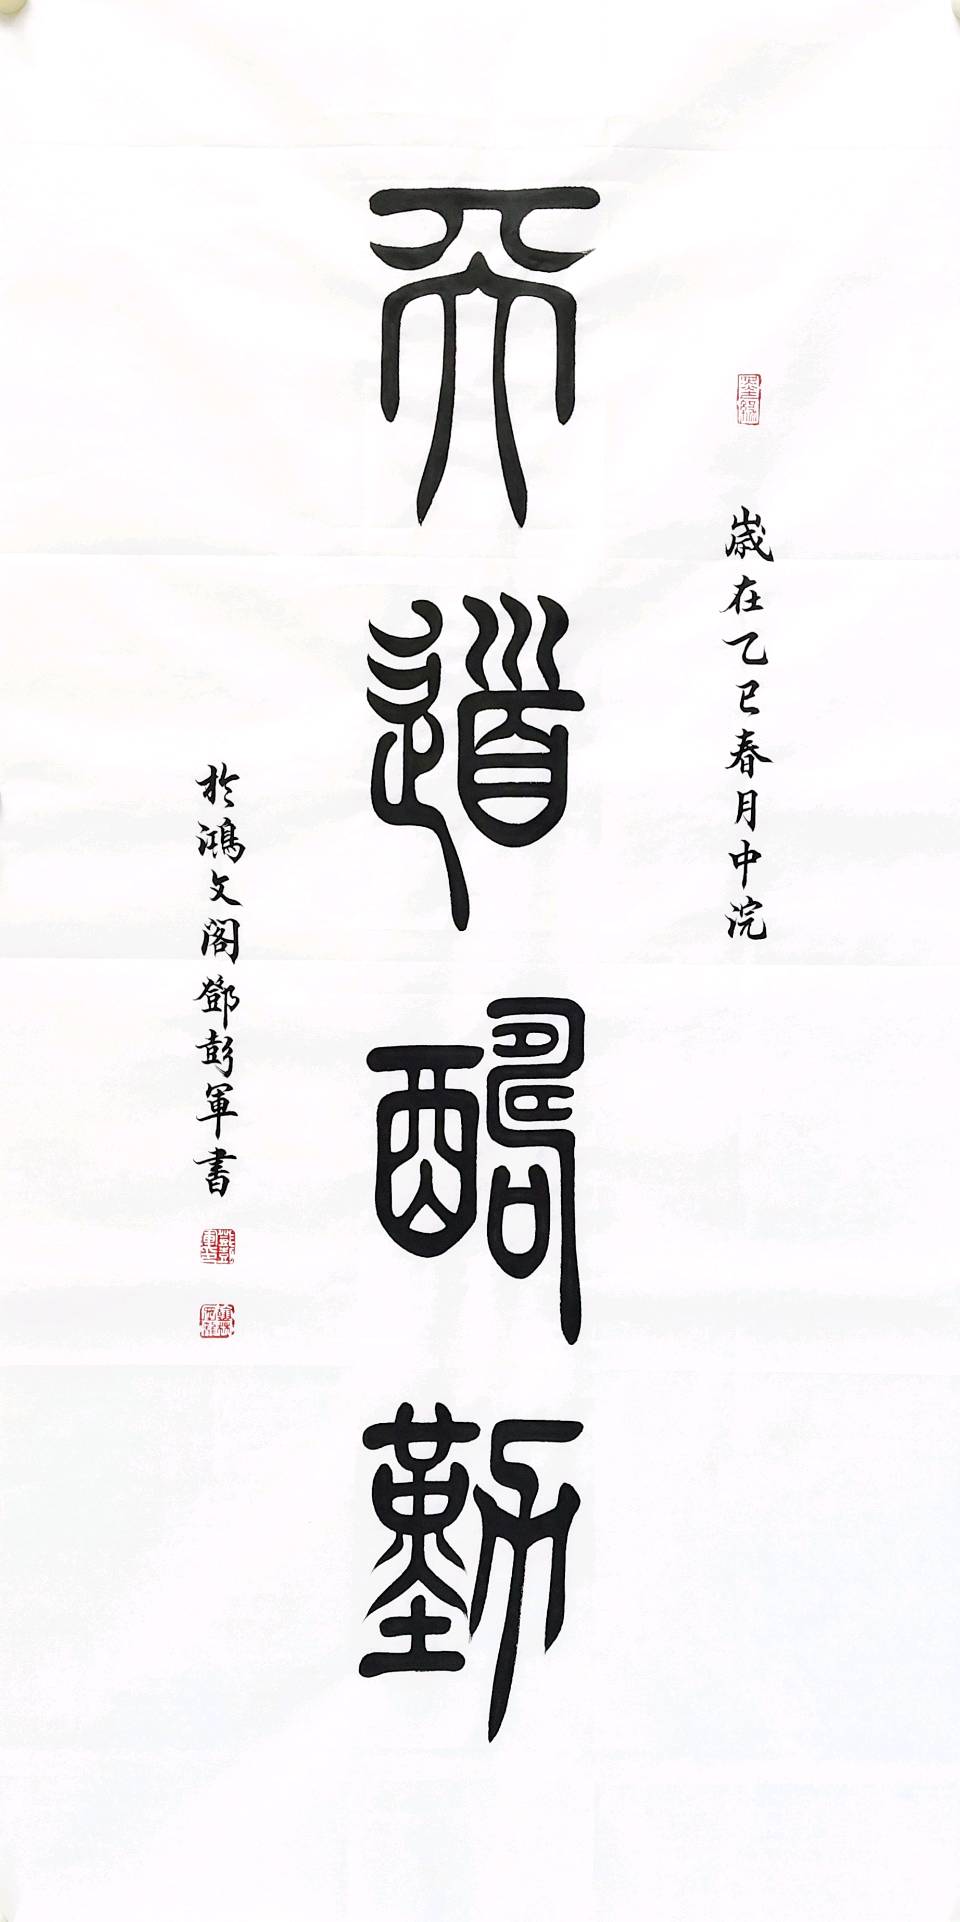 墨緣
歲在乙巳春月中浣
天道酬勤
於鴻文閣鄧彭軍書